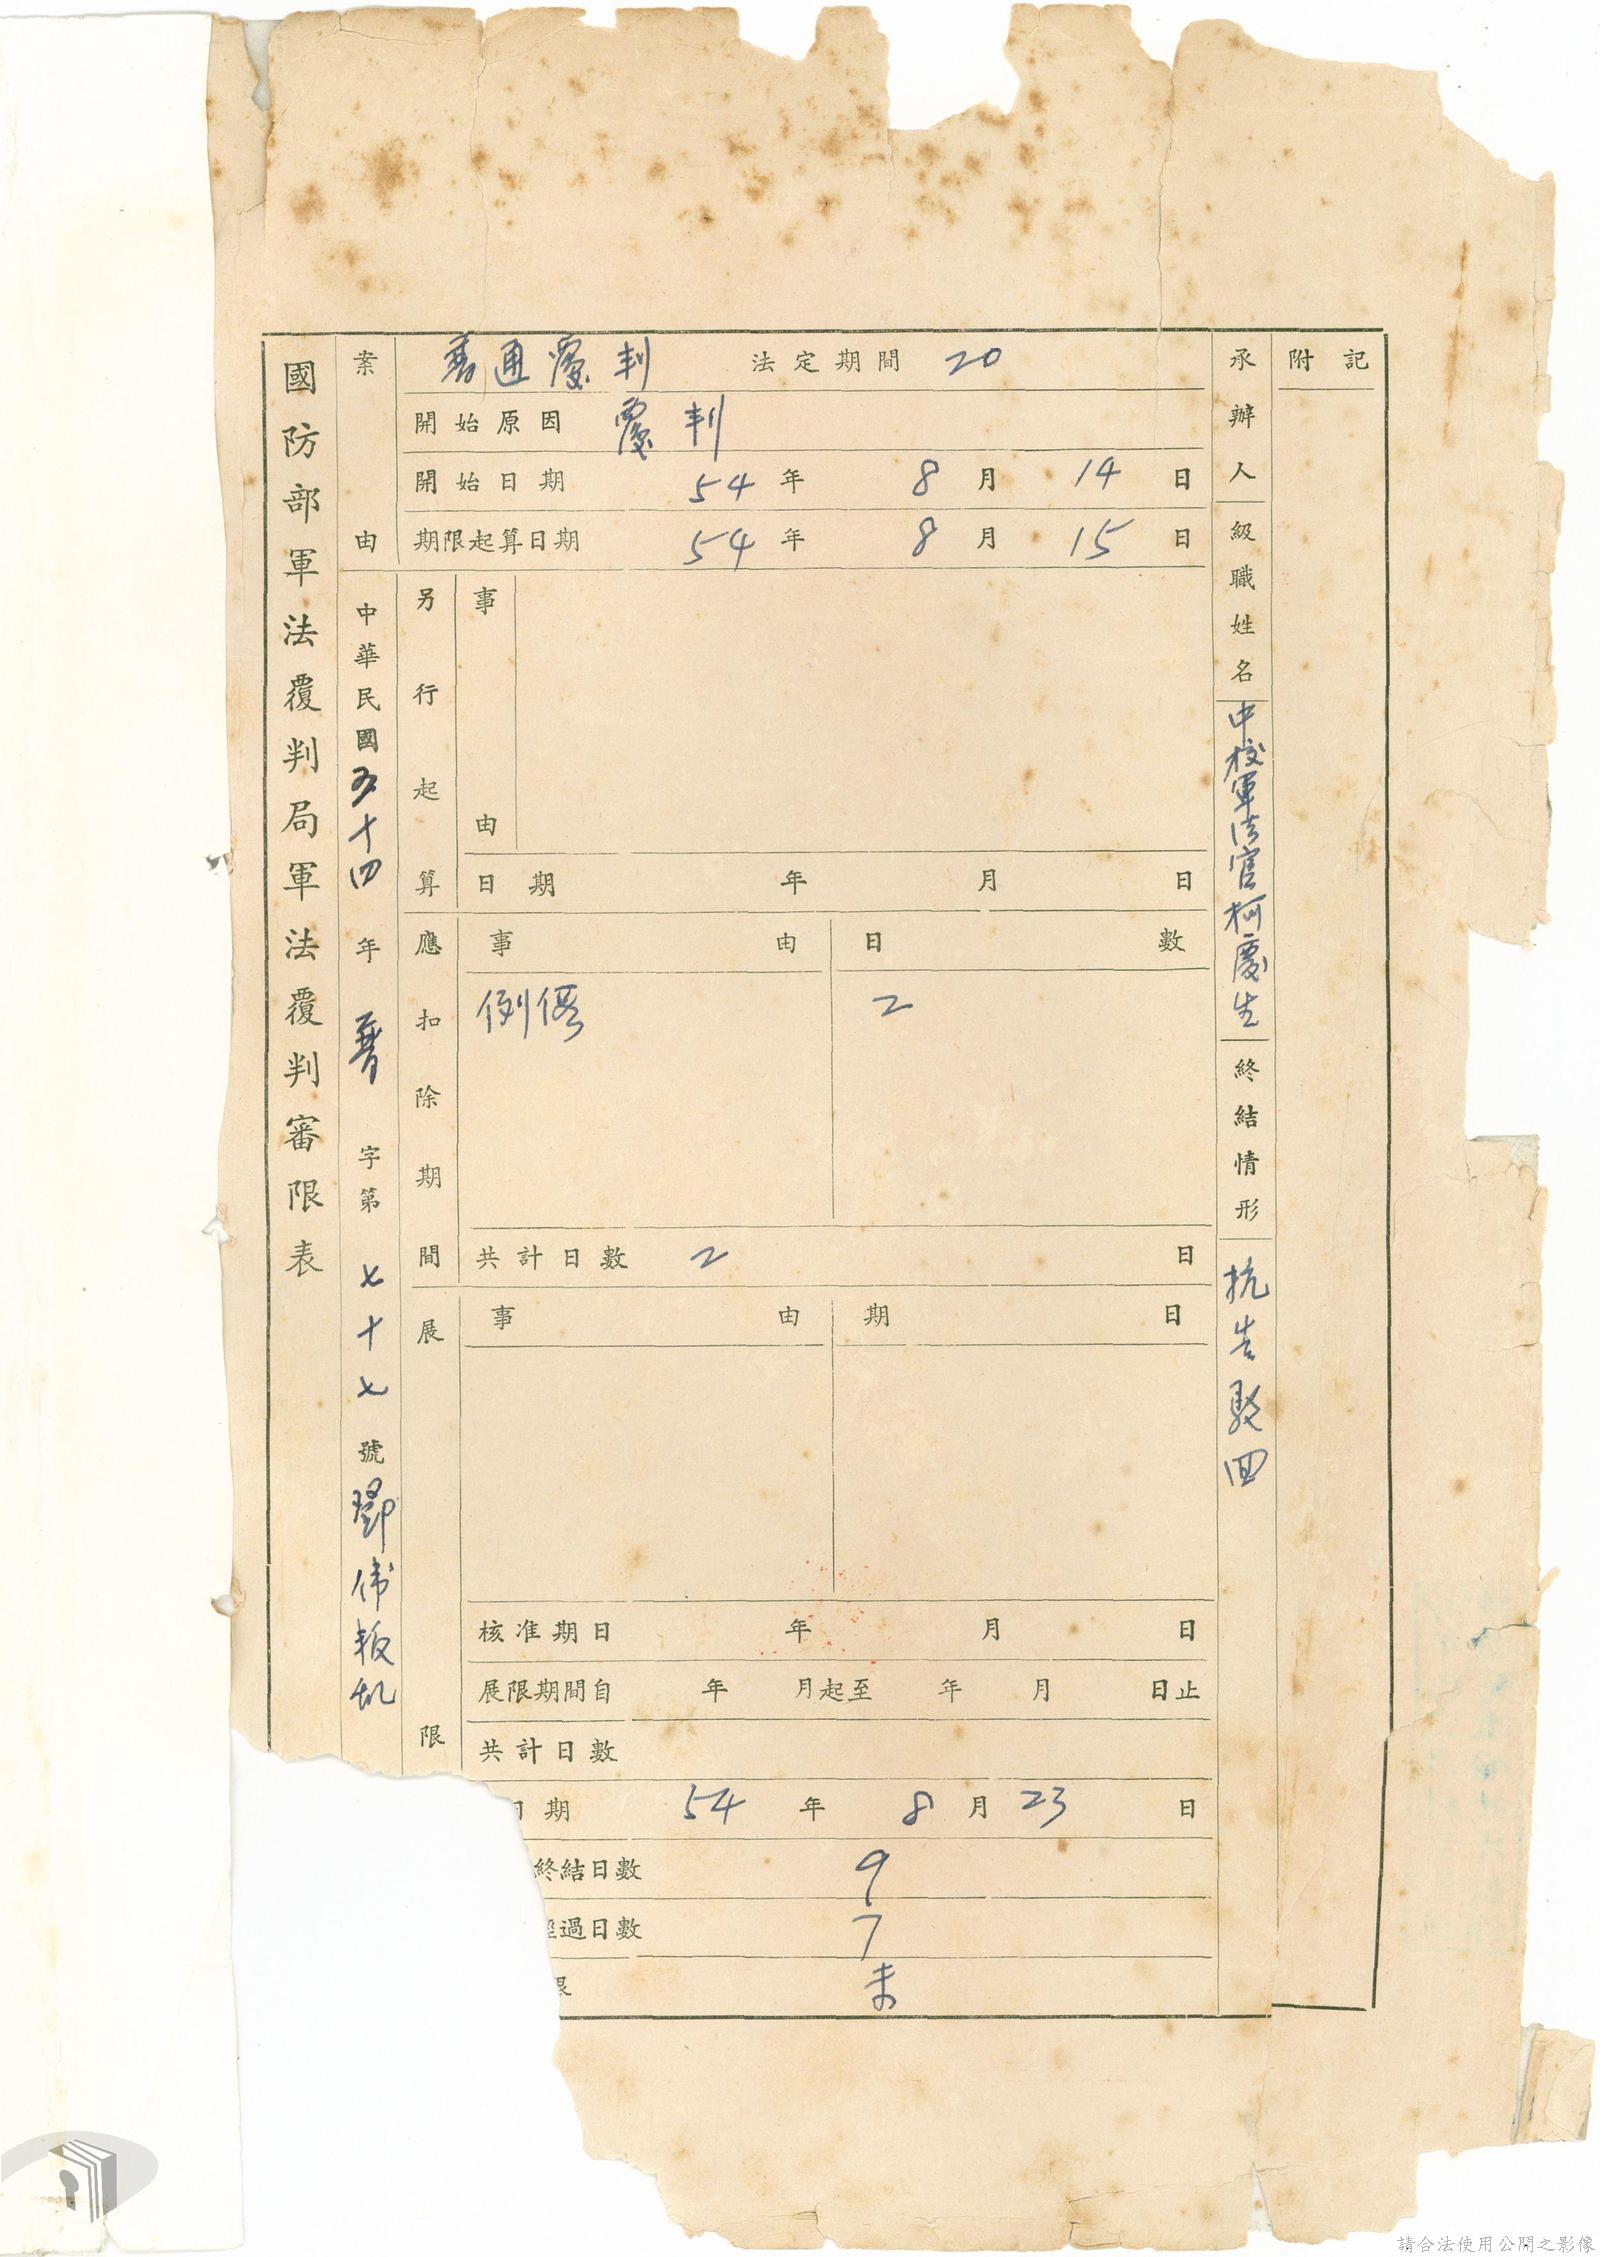 國防部軍法覆判局軍法覆判審限表
案由
普通覆判 法定期間 20
開始原因 覆判
開始日期 54年 8月 14日
期限起算日期 54年 8月 15日
中華民國五十四年 普 字第 七十七 號 鄧伟叛乱
另行起算
事由
日期 年 月 日
應扣除期間
事由 日數
例假 2
共計日數 2 日
展限
事由 期日
核准期日 年 月 日
展限期間自 年 月起至 年 月 日止
共計日數
日期 54年 8月 23日
終結日數 9
經過日數 7
限 未
承辦人級職姓名 中校軍法官柯慶生
終結情形 抗告駁回
附記
請合法使用公開之影像